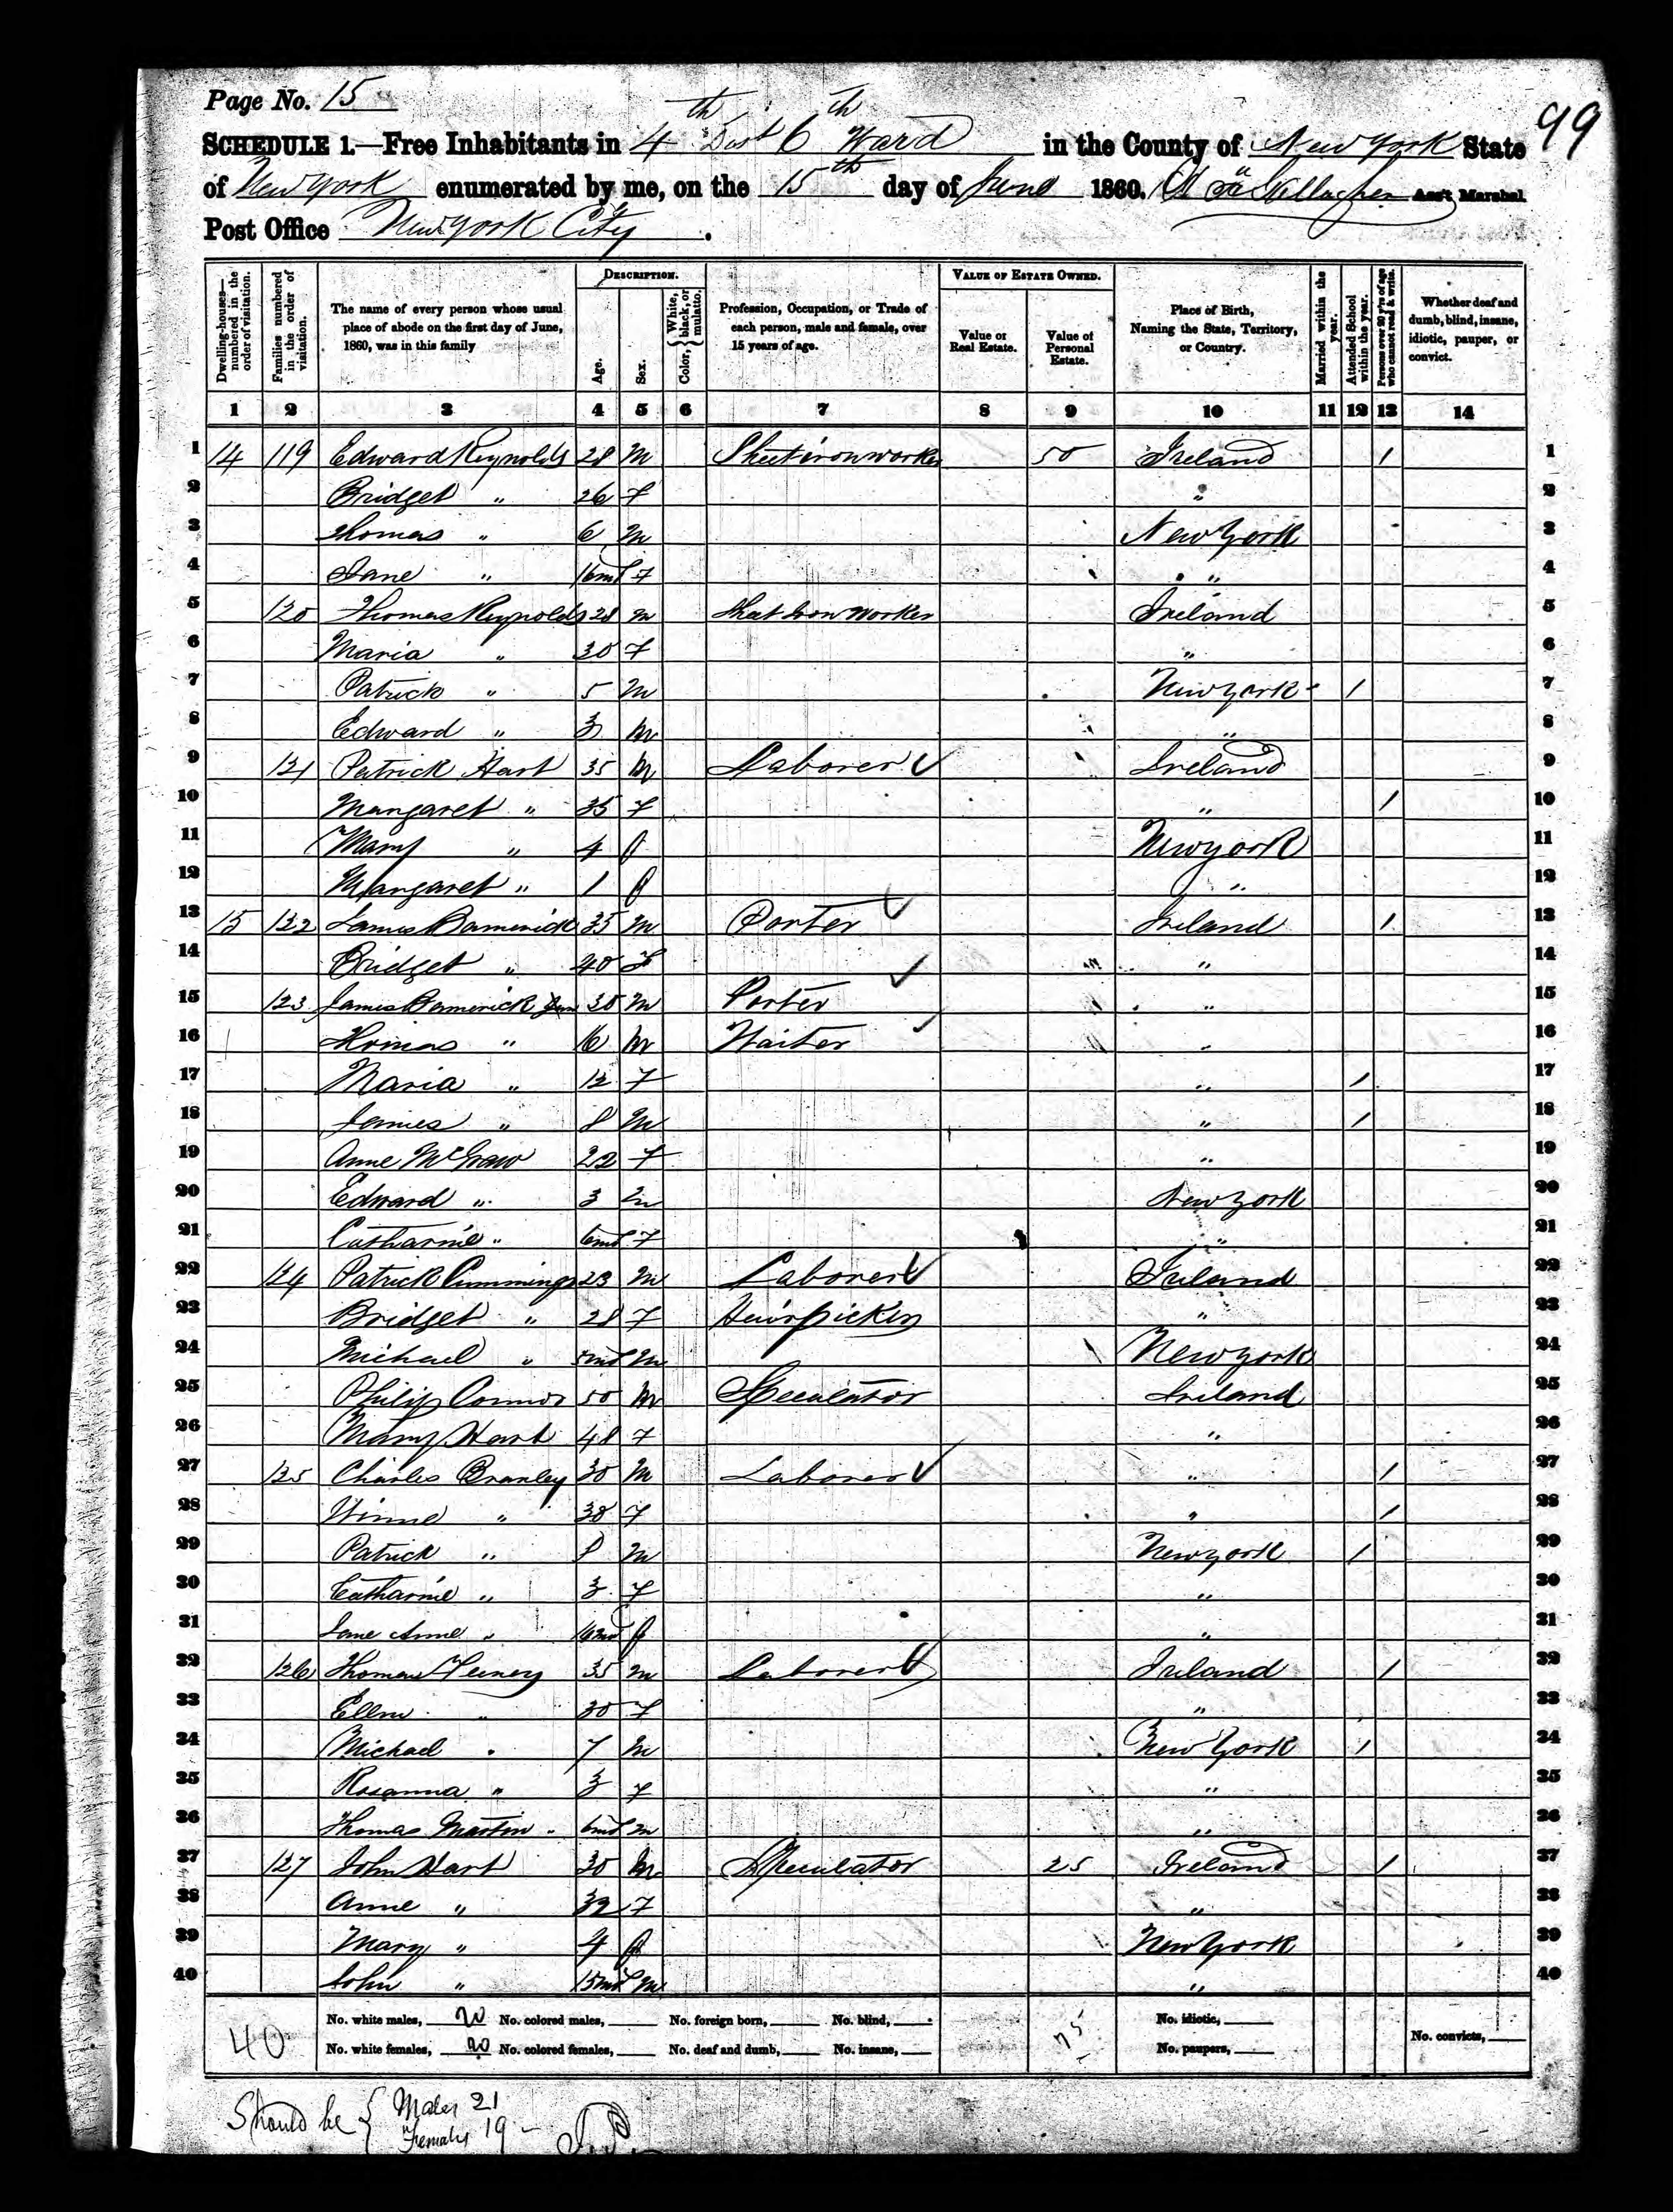 Page No. 15
99
SCHEDULE 1.—Free Inhabitants in 4th Dist 6th Ward in the County of New York State
of New York enumerated by me, on the 15th day of June 1860. Gallagher Ass't Marshal
Post Office New York City.
Dwelling-houses—numbered in the order of visitation.
Families numbered in the order of visitation.
The name of every person whose usual place of abode on the first day of June, 1860, was in this family
DESCRIPTION.
Age.
Sex.
Color, { White, black, or mulatto.
Profession, Occupation, or Trade of each person, male and female, over 15 years of age.
VALUE OF ESTATE OWNED.
Value of Real Estate.
Value of Personal Estate.
Place of Birth, Naming the State, Territory, or Country.
Married within the year.
Attended School within the year.
Persons over 20 y'rs of age who cannot read & write.
Whether deaf and dumb, blind, insane, idiotic, pauper, or convict.
1 2 3 4 5 6 7 8 9 10 11 12 13 14
1 14 119 Edward Reynolds 28 M Sheet iron worker 50 Ireland / 1
2 Bridget " 26 F " 2
3 Thomas " 6 M New York 3
4 Jane " F " 4
5 120 Thomas Reynolds 28 M Sheet Iron Worker Ireland 5
6 Maria " 30 F " 6
7 Patrick " 5 M New York / 7
8 Edward " 3 M " 8
9 121 Patrick Hart 35 M Laborer ✓ Ireland 9
10 Margaret " 35 F " / 10
11 Mary " 4 f New York 11
12 Margaret " 1 f " 12
13 15 122 James Bamerick 35 M Porter ✓ Ireland / 13
14 Bridget " 40 F " 14
15 123 James Bamerick 30 M Porter ✓ " 15
16 Thomas " 16 M Waiter ✓ " 16
17 Maria " 12 F " / 17
18 James " 8 M " / 18
19 Anne McGraw 22 F " 19
20 Edward " 3 M New York 20
21 Catharine " F " 21
22 124 Patrick Cummings 23 M Laborer ✓ Ireland 22
23 Bridget " 28 F Hair picker " 23
24 Michael " M New York 24
25 Philip Connor 50 M Speculator Ireland 25
26 Mary Hart 48 F " 26
27 125 Charles Branley 30 M Laborer ✓ " / 27
28 Winne " 38 F " / 28
29 Patrick " 8 M New York / 29
30 Catharine " 3 F " 30
31 Jane Anne " f " 31
32 126 Thomas 35 M Laborer ✓ Ireland / 32
33 Ellen " 30 F " 33
34 Michael " 7 M New York / 34
35 Rosanna " 3 F " 35
36 Thomas Martin " M " 36
37 127 John Hart 30 M Speculator 25 Ireland / 37
38 Anne " 32 F " 38
39 Mary " 4 f New York 39
40 John " M " 40
40
No. white males, 20 No. colored males, No. foreign born, No. blind, 75 No. idiotic,
No. white females, 20 No. colored females, No. deaf and dumb, No. insane, No. paupers, No. convicts,
Should be { Males 21
Females 19